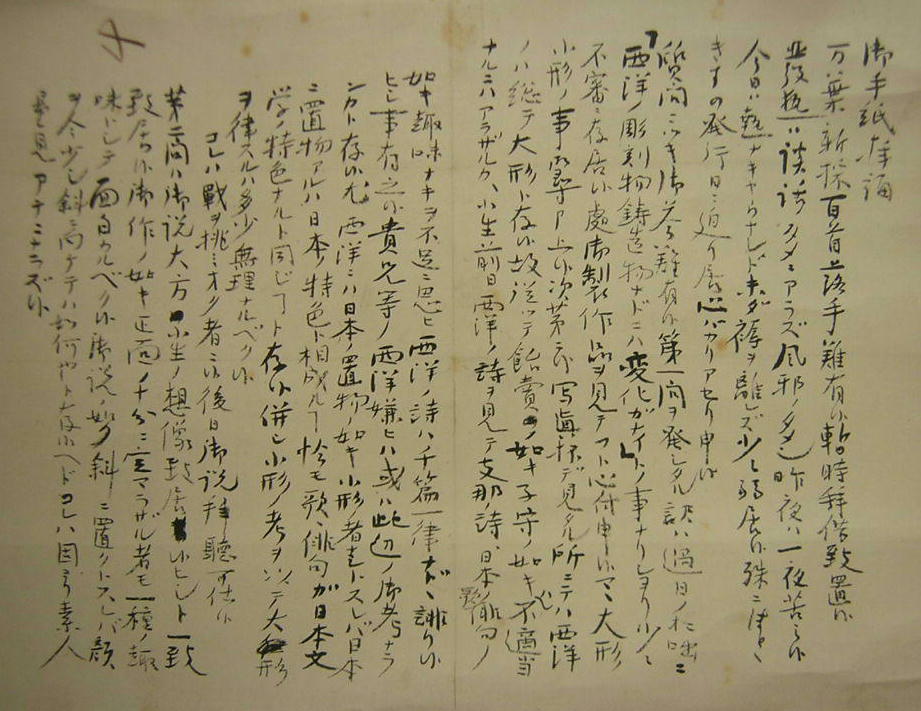 御手紙拝誦
万葉新採百首落手難有候暫時拝借致置候
談話スクニアラズ風邪ノタメ昨夜ハ一夜苦シミ候
今日ハ熱ナキヤウナレド未ダ褥ヲ離レズ少々弱居候殊ニ
きすの発行日ニ迫リ居心バカリアセリ申候
質問ニツキ御答難有候第一問ヲ発シタル訳ハ過日ノ
「西洋ノ彫刻物鋳造物ナドニハ変化ガナイ」トノ事ナリシヨリ少々
不審ニ存居候処御製作品ヲ見テフト心付申候マヽ大形
小形ノ事御尋申上候次第ニ写真抔デ見タル所ニテハ西洋
ノハ総テ大形ト存候故従ツテ飴売ノ如キ子守ノ如キハ不適当
ナルニハアラザルカ、小生前日西洋ノ詩ヲ見テ支那ノ詩、日本ノ俳句ノ
如キ趣味ナキヲ不足ニ思ヒ西洋ノ詩ハ千篇一律ナド誹リ候
ヒシ事有之候貴兄等ノ西洋嫌ヒハ或ハ此辺ノ御考ナラ
ンカト存候尤西洋ニハ日本置物ノ如キ小形者無シトスレバ日本
ニ置物アルハ日本ノ特色ト相成ルコト恰モ歌、俳句ガ日本文
学ノ特色ナルト同ジコトト存候併シ小形ノ考ヲ以テ大形
ヲ律スルハ多少無理ナルベク候
コレハ戦ヲ挑ミオク者ニ候後日御説拝聴可仕候
第二問ハ御説大方小生ノ想像致居候ヒシト一致
致居候御作ノ如キ正面ノ十分ニ定マラザル者モ一種ノ趣
味トシテ面白カルベク候御説ノ如ク斜ニ置クトスレバ顔
ヲ今少シ斜ニ向ケテハ如何ヤト存候ヘドコレハ固ヨリ素人
量見アテニナラズ候